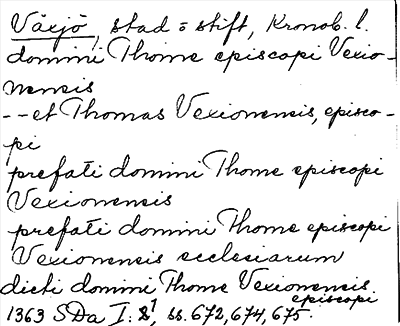 Växjö, stad o stift, Kronob. l.
domini Thome episcopi Vexio-
nensis
-- et Thomas Vexionensis, episco-
pi
prefati domini Thome episcopi
Vexionensis
prefati domini Thome episcopi
Vexionensis ecclesiarum
dicti domini Thome Vexionensis
episcopi
1363 SDa I:1, ss. 672, 674, 675.